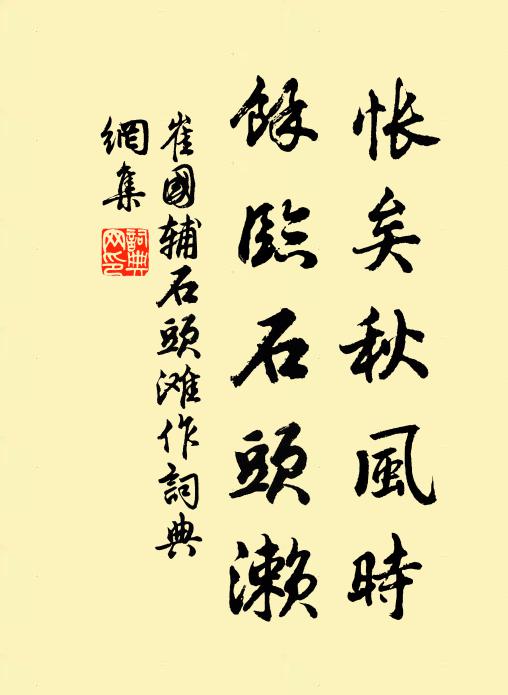 悵矣秋風時
餘臨石頭瀨
崔國輔石頭滩作詞典
網集
詞典
网印